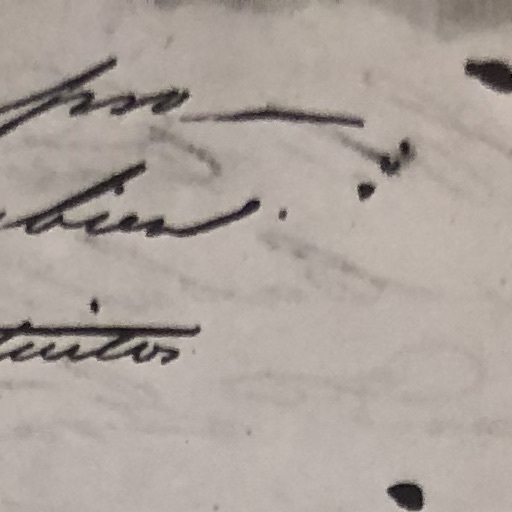 pso
bien.
tuitos